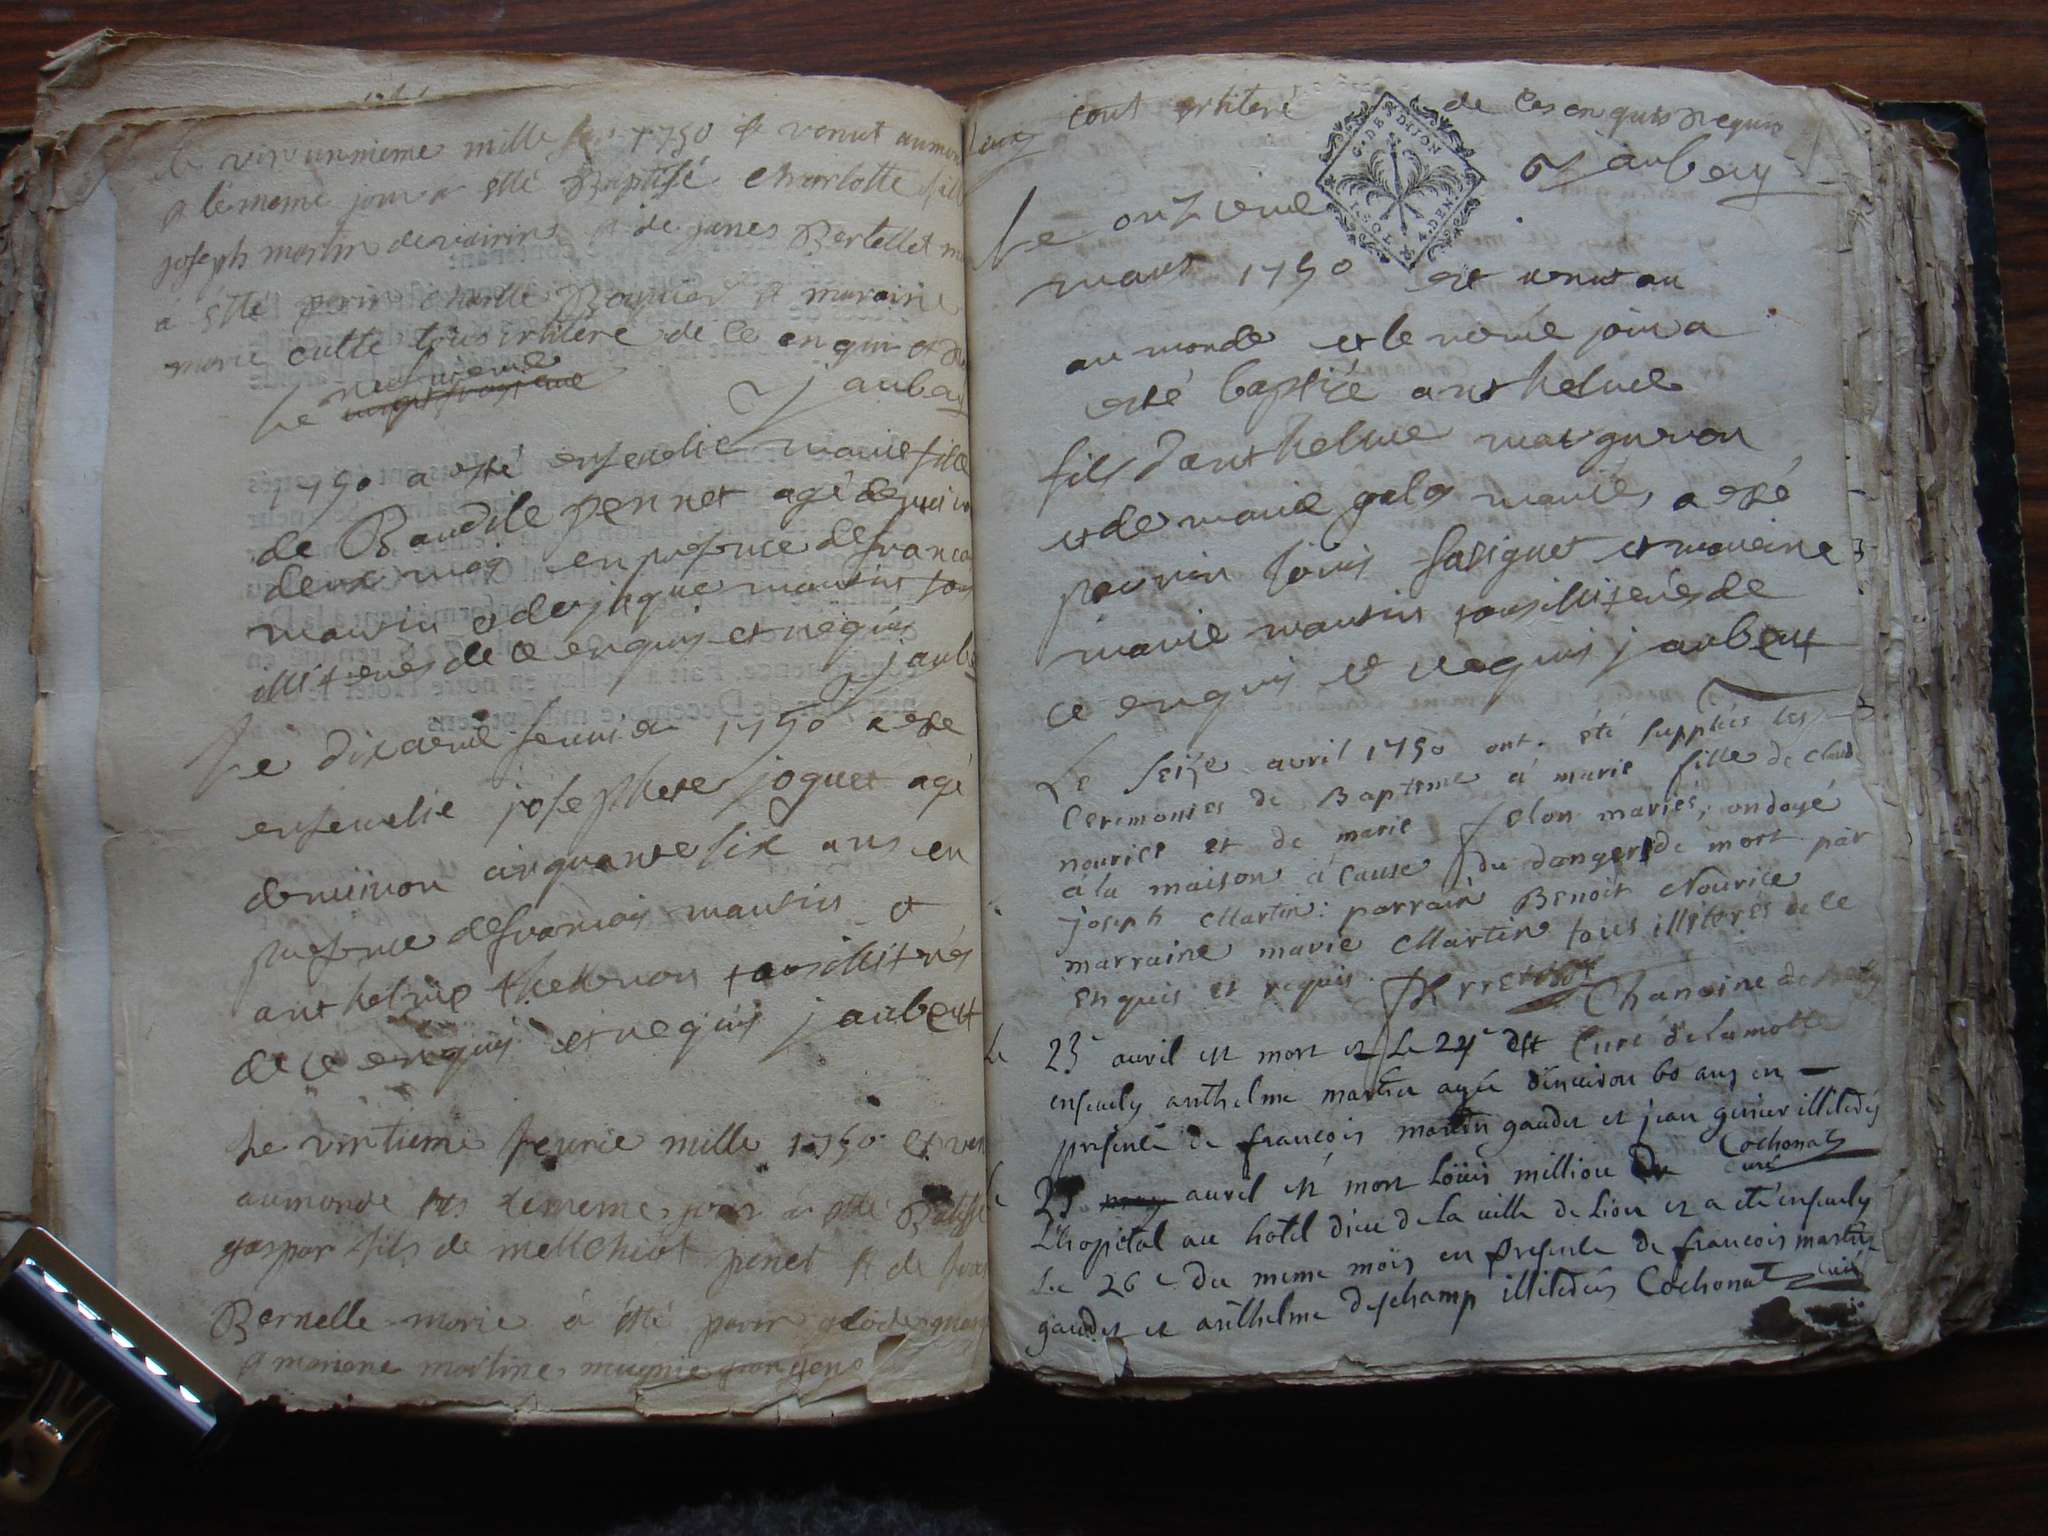 le vin unnieme mille 1750 & venut aumon
& lememe jour a etté Baptisé charlotte fille
joseph martin & de janes Bertellet
a etté parin charlle & maraine
marie cutte tous irlitere de ce enquis et
le neufvieme
j aubert
1750 a esté ensevelie marie fille
de Baudile pennet agé denviron
deux mois en presence de francois
martin et de jaque martin tous
illiterés de ce enquis et requis
j aube
Le dixieme fevrier 1750 a esté
ensevelie josephete joguet agé
denviron cinquante six ans en
presence de francois martin et
anthelme thevenon tous illiterés
de ce enquis et requis j aubert
Le vintieme fevrie mille 1750 et ven
aumonde & lememe jour a etté Batissé
gaspar fils de mellchiot penet & de
Bernelle marie a etté parin
& mariane martine
tout irliteré de ces enquis requis
j aubery
G. DES DIJON
Le onzieme
mars 1750 est venu au
au monde et le meme jour a
esté baptisé anthelme
fils danthelme margueron
et de marie mariés, a esté
parrin louis et maraine
marie martin tous illiterés de
ce enquis et requis j aubert
Le seize avril 1750 ont été supplées les
Ceremonies de Baptême à marie fille de Claud
nourice et de marie felon mariés, ondoyé
à la maison à cause du danger de mort par
joseph Martin: parrain Benoit Nourice
marraine marie Martin tous illiteres de ce
enquis et requis. Chanoine de
Le 23e avril est mort et le 24e dit Curé de lamotte
ensevely anthelme martin agée denviron 60 ans en
presence de francois martin gaudet et jean illiterés
Cochonat
curé
25 avril est mort Loüis million De
L'hopital au hotel dieu de la ville de Lion et a eté ensevely
Le 26e du meme mois en presence de francois martin
gaudet et anthelme deschamp illiterés Cochonat curé